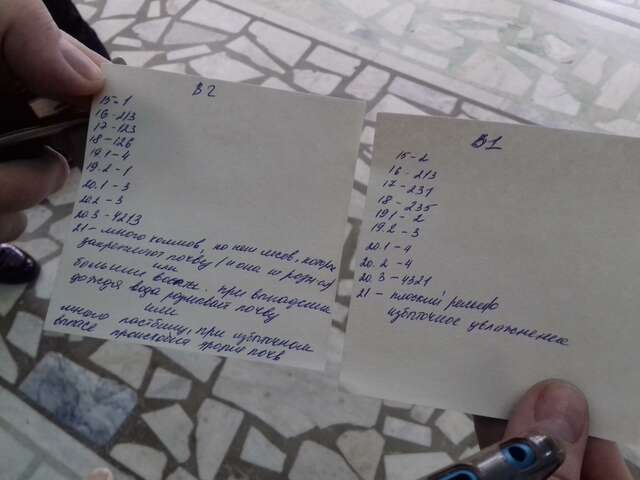 В2
15-1
16-213
17-123
18-126
19.1-4
19.2-1
20.1-3
20.2-3
20.3-4213
21- много холмов, но нет лесов, которые
закрепляют почву
или
большие При выпадении
дождя вода размывает почву
или
много пастбищ, при избыточном
выпасе происходит эрозия почв
В1
15-2
16-213
17-231
18-235
19.1-2
19.2-3
20.1-4
20.2-4
20.3-4321
21- плоский рельеф
избыточное увлажнение